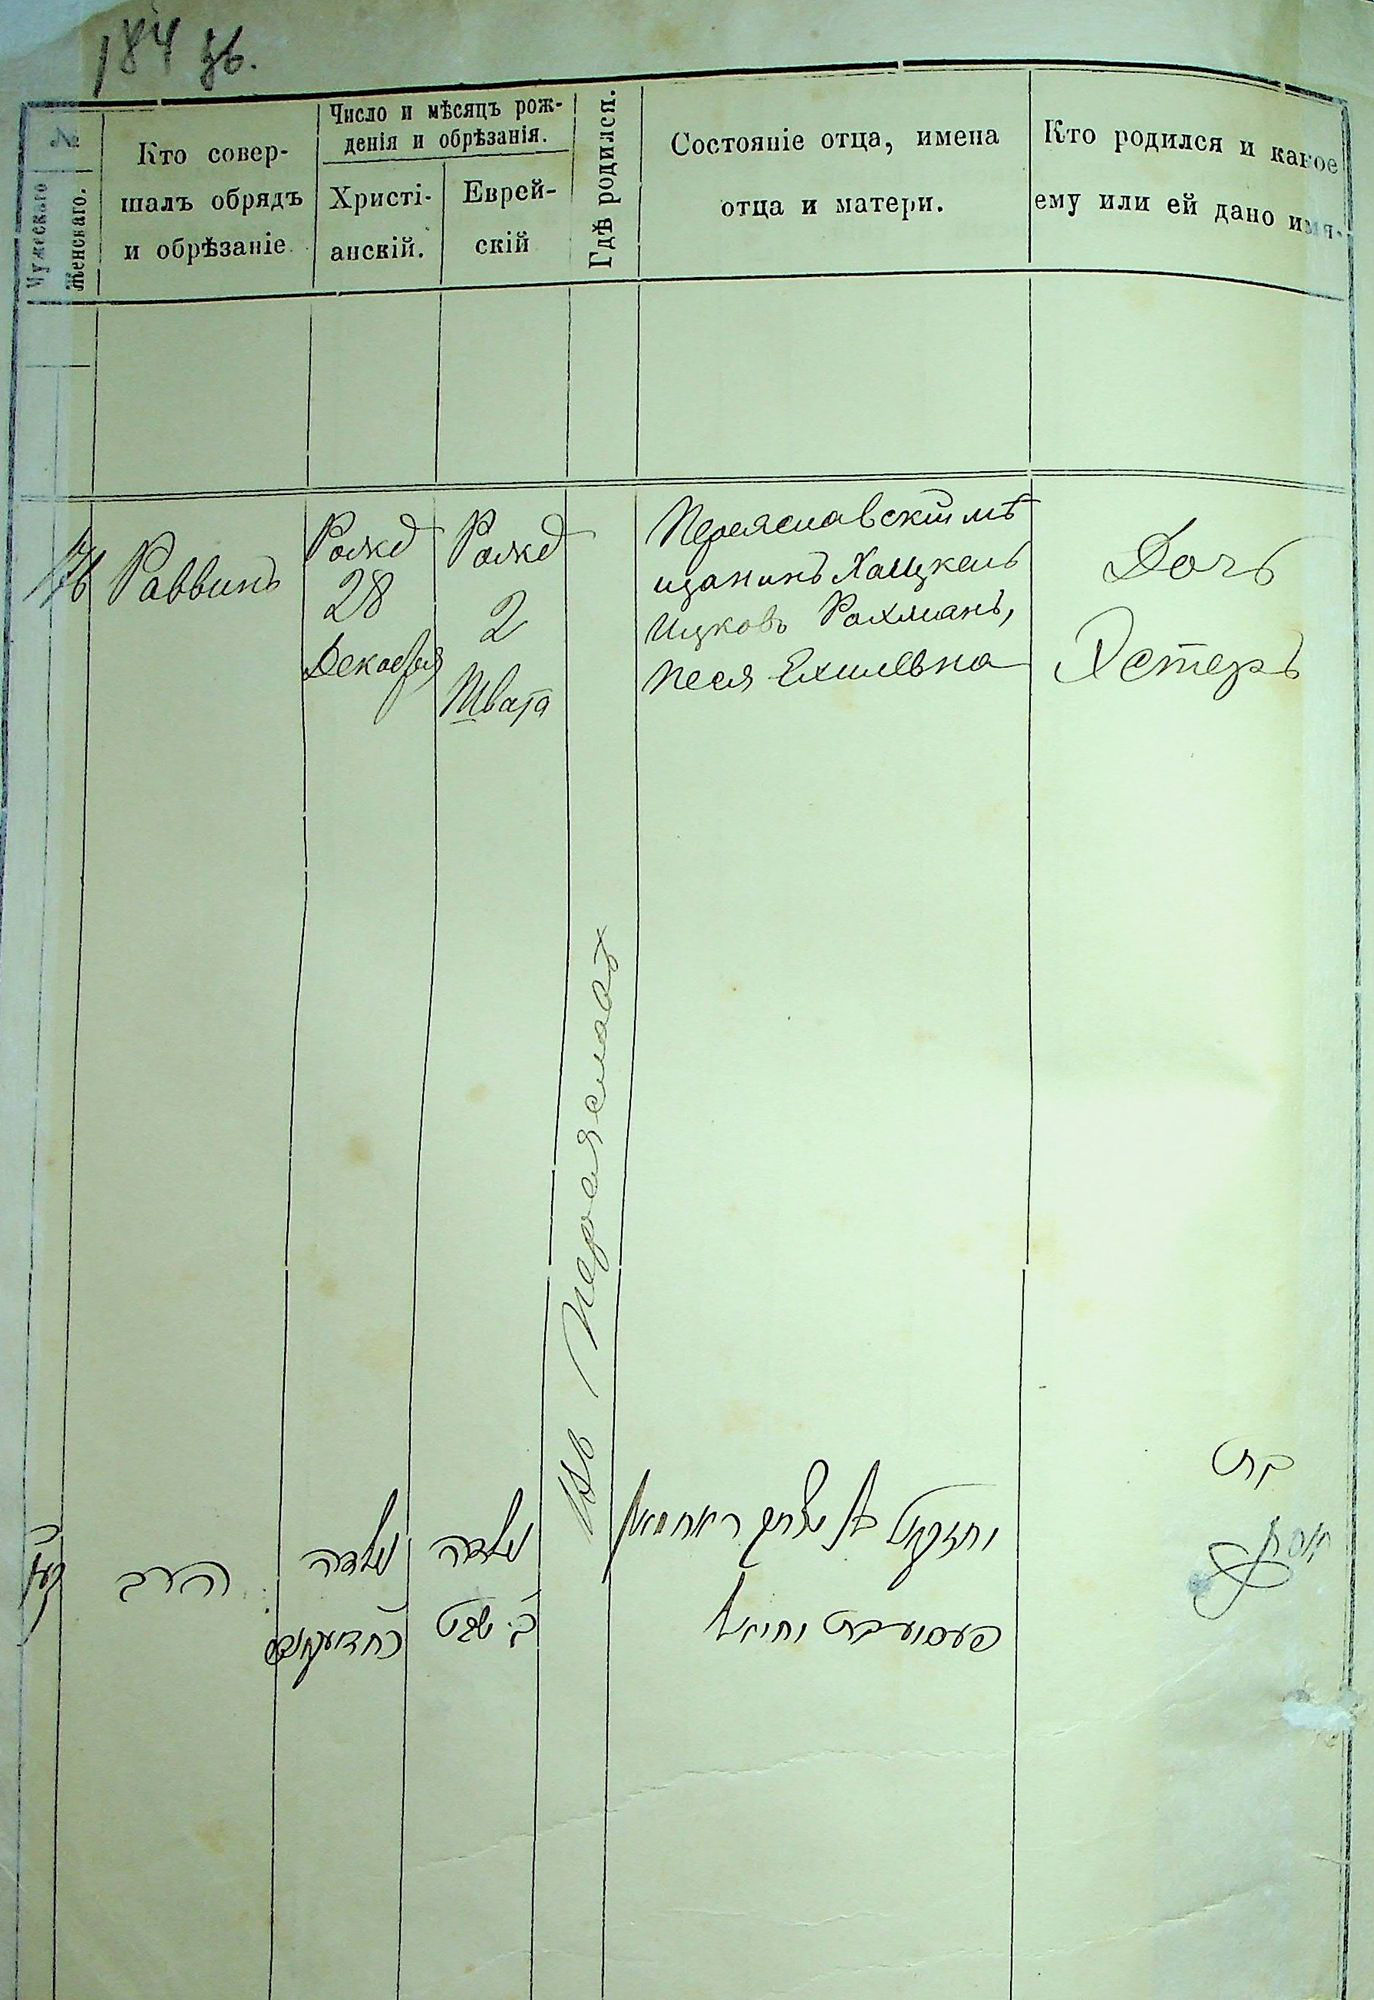 184 зв.
№
Мужескаго
Женскаго.
Кто совер-
шалъ обрядъ
и обрѣзаніе
Число и мѣсяцъ рож-
денія и обрѣзанія.
Христі-
анскій.
Еврей-
скій
Гдѣ родился.
Состояніе отца, имена
отца и матери.
Кто родился и какое
ему или ей дано имя.
Раввинъ
Рожд
28
Декабря
Рожд
2
Швата
Въ Переяславѣ
Переяславскій мѣ
щанинъ Хацкель
Ицковъ Рахманъ,
Песя Ехилевна
Дочь
Эстеръ
הרב
נולדה
נולדה
ב׳ שבט
יחזקאל בן יצחק ראחמאן
פעסי בת יחיאל
בת
אסתר